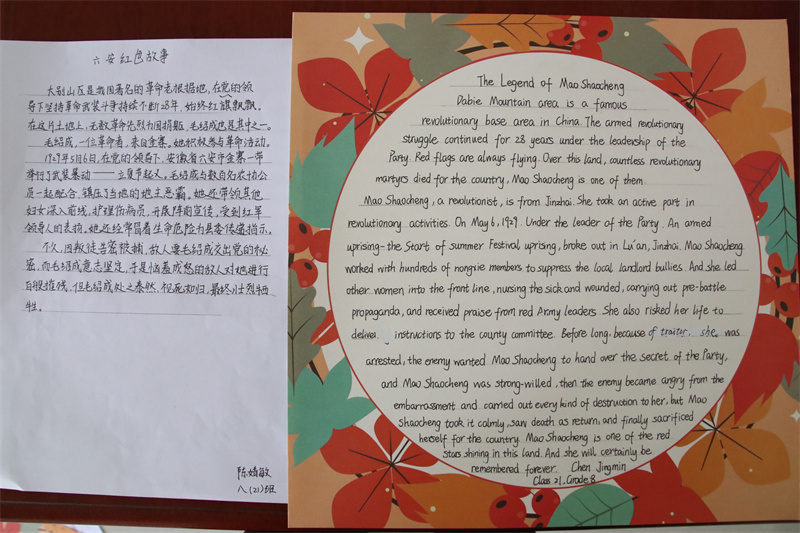 六安红色故事
大别山区是我国著名的革命老根据地,在党的领
导下坚持革命武装斗争持续不断28年,始终红旗飘飘。
在这片土地上,无数革命先烈为国捐躯,毛绍成也是其中之一。
毛绍成,一位革命者,来自金寨。她积极参与革命活动。
1929年5月6日,在党的领导下,安徽省六安市金寨一带
举行了武装暴动——立夏节起义。毛绍成与数百名农协会
员一起配合,镇压了当地的地主恶霸。她还带领其他
妇女深入前线,护理伤病员,开展阵前宣传,受到红军
领导人的表扬。她还经常冒着生命危险为县委传递指示。
不久,因叛徒告密被捕,敌人要毛绍成交出党的秘
密,而毛绍成意志坚定,于是恼羞成怒的敌人对她进行
百般摧残,但毛绍成处之泰然,视死如归,最终壮烈牺
牲。
陈婧敏
八(21)班
The Legend of Mao Shaocheng
Dabie Mountain area is a famous
revolutionary base area in China. The armed revolutionary
struggle continued for 28 years under the leadership of the
Party. Red flags are always flying. Over this land, countless revolutionary
martyrs died for the country, Mao Shaocheng is one of them.
Mao Shaocheng, a revolutionist, is from Jinzhai. She took an active part in
revolutionary activities. On May 6, 1929. Under the leader of the Party. An armed
uprising-the Start of summer Festival uprising, broke out in Lu'an, Jinzhai. Mao Shaocheng
worked with hundreds of nongxie members to suppress the local landlord bullies. And she led
other women into the front line, nursing the sick and wounded, carrying out pre-battle
propaganda, and received praise from red Army leaders. She also risked her life to
deliver instructions to the county committee. Before long, because of traitor, she was
arrested, the enemy wanted Mao Shaocheng to hand over the secret of the Party,
and Mao Shaocheng was strong-willed, then the enemy became angry from the
embarrassment and carried out every kind of destruction to her, but Mao
Shaocheng took it calmly, saw death as return, and finally sacrificed
herself for the country. Mao Shaocheng is one of the red
stars shining in this land. And she will certainly be
remembered forever. Chen Jingmin
Class 21, Grade 8